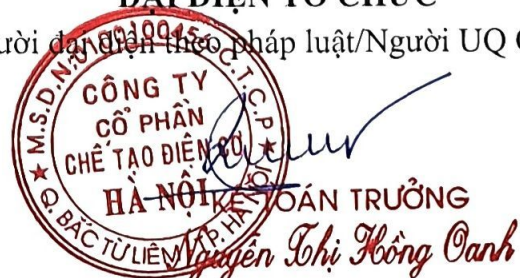 ĐẠI DIỆN TỔ CHỨC
ười đại diện theo pháp luật/Người UQ
M.S.D.N: C.T.C.P
CÔNG TY
CỔ PHẦN
CHẾ TẠO ĐIỆN CƠ
HÀ NỘI
Q. BẮC TỪ LIÊM TP. HÀ NỘI
KẾ TOÁN TRƯỞNG
Nguyễn Thị Hồng Oanh